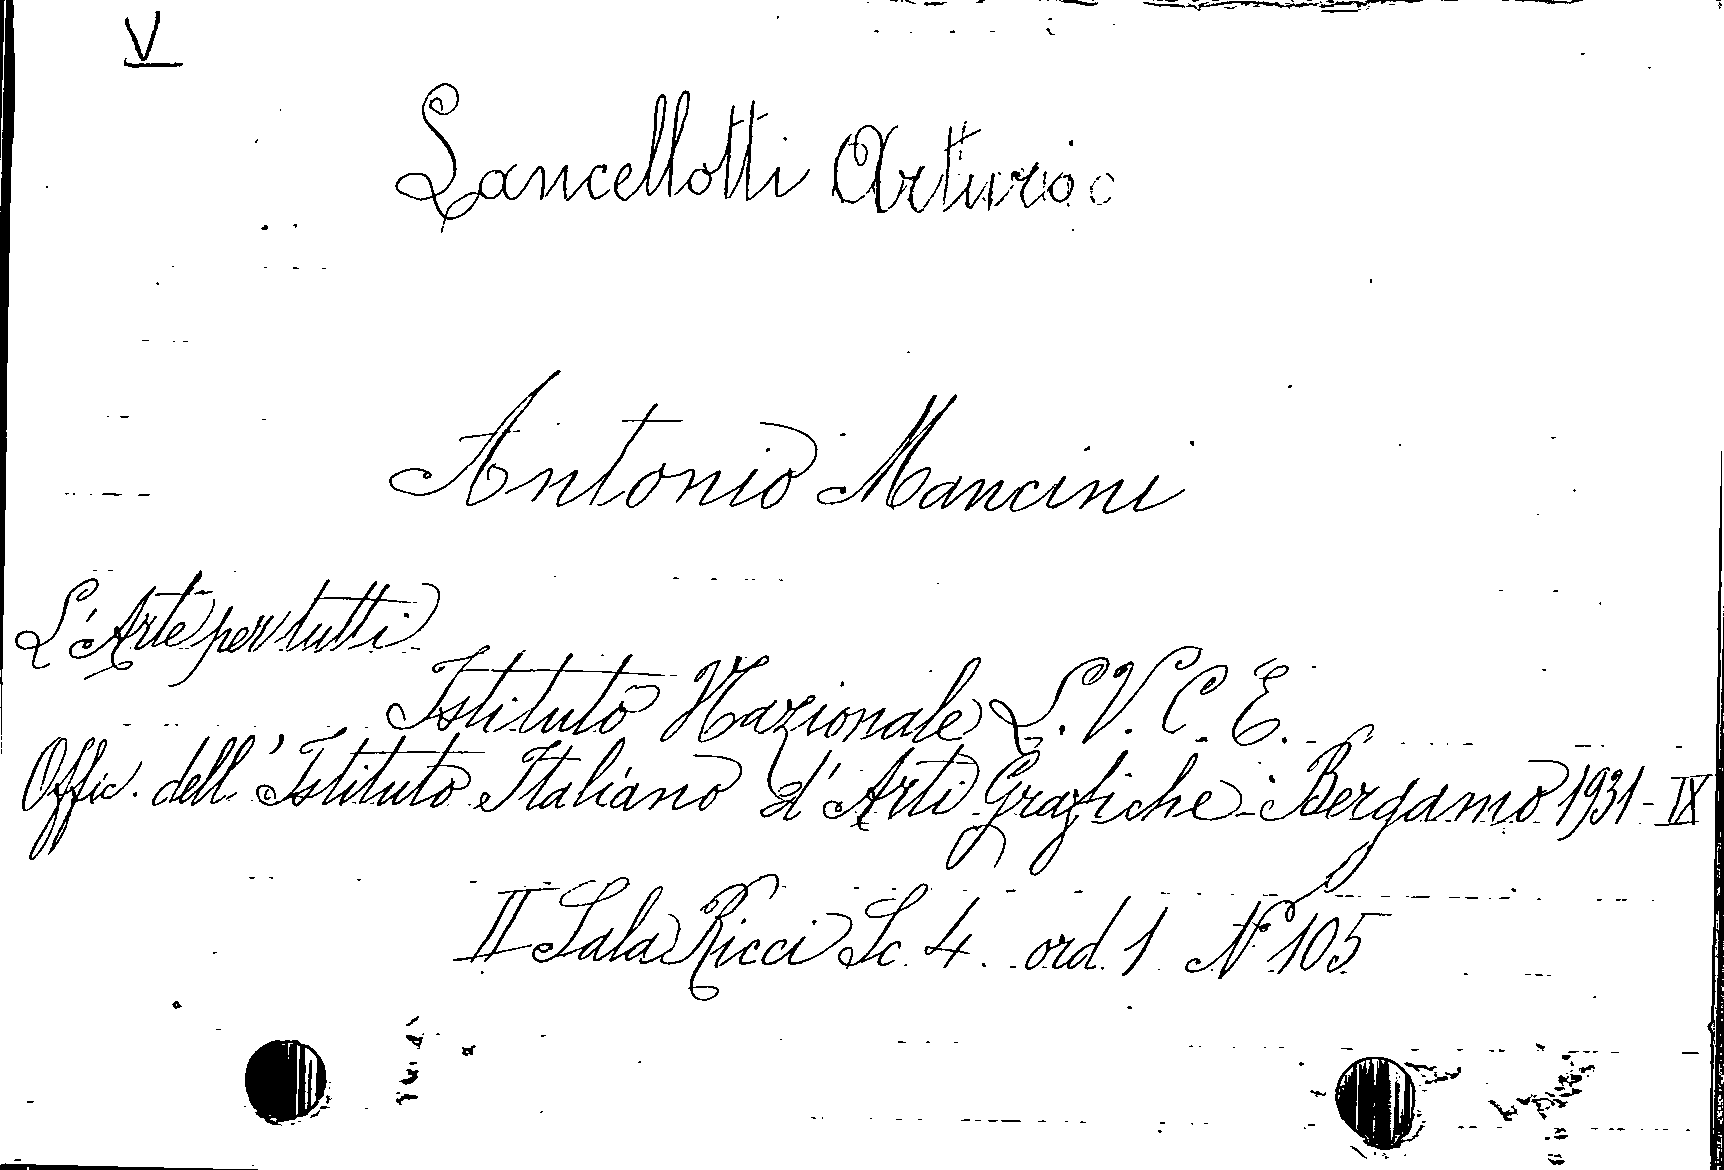 V
Lancellotti Arturo
Antonio Mancini
L'Arte per tutti
Istituto Nazionale L. V. C. E.
Offic. dell'Istituto Italiano d'Arti Grafiche - Bergamo 1931 - IX
II Sala Ricci Sc. 4. ord. 1 N° 105